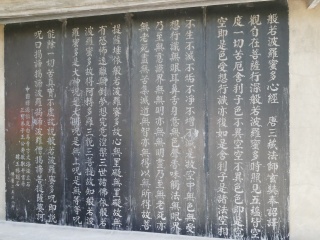 般若波羅蜜多心經 唐三藏法師玄奘奉詔譯
觀自在菩薩行深般若波羅蜜多時照見五蘊皆空
度一切苦厄舍利子色不異空空不異色色即是空
空即是色受想行識亦復如是舍利子是諸法空相
不生不滅不垢不淨不增不減是故空中無色無受
想行識無眼耳鼻舌身意無色聲香味觸法無眼界
乃至無意識界無無明亦無無明盡乃至無老死亦
無老死盡無苦集滅道無智亦無得以無所得故菩
提薩埵依般若波羅蜜多故心無罣礙無罣礙故無
有恐怖遠離顛倒夢想究竟涅槃三世諸佛依般若
波羅蜜多故得阿耨多羅三藐三菩提故知般若波
羅蜜多是大神咒是大明咒是無上咒是無等等咒
能除一切苦真實不虛故說般若波羅蜜多咒即說
咒曰揭諦揭諦波羅揭諦波羅僧揭諦菩提薩婆訶